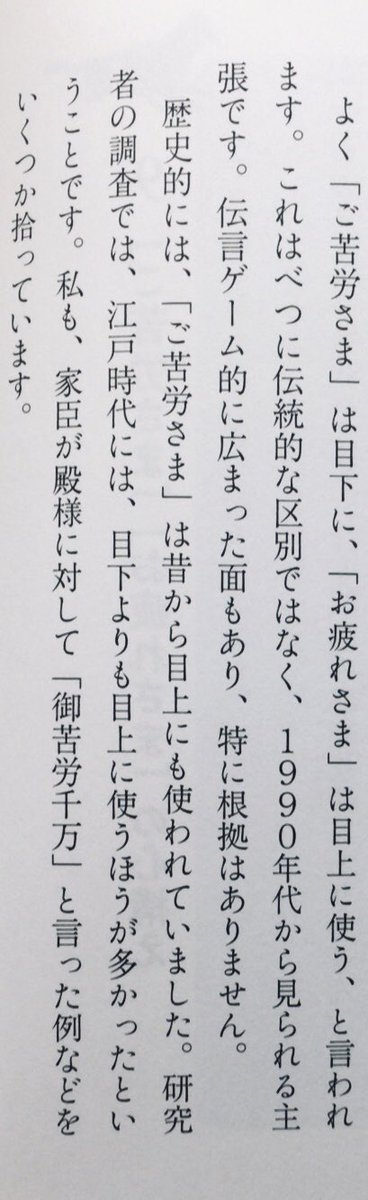 よく「ご苦労さま」は目下に、「お疲れさま」は目上に使う、と言われ
ます。これはべつに伝統的な区別ではなく、1990年代から見られる主
張です。伝言ゲーム的に広まった面もあり、特に根拠はありません。
歴史的には、「ご苦労さま」は昔から目上にも使われていました。研究
者の調査では、江戸時代には、目下よりも目上に使うほうが多かったとい
うことです。私も、家臣が殿様に対して「御苦労千万」と言った例などを
いくつか拾っています。